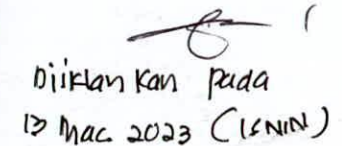 Diiklankan pada
13 Mac 2023 (ISNIN)